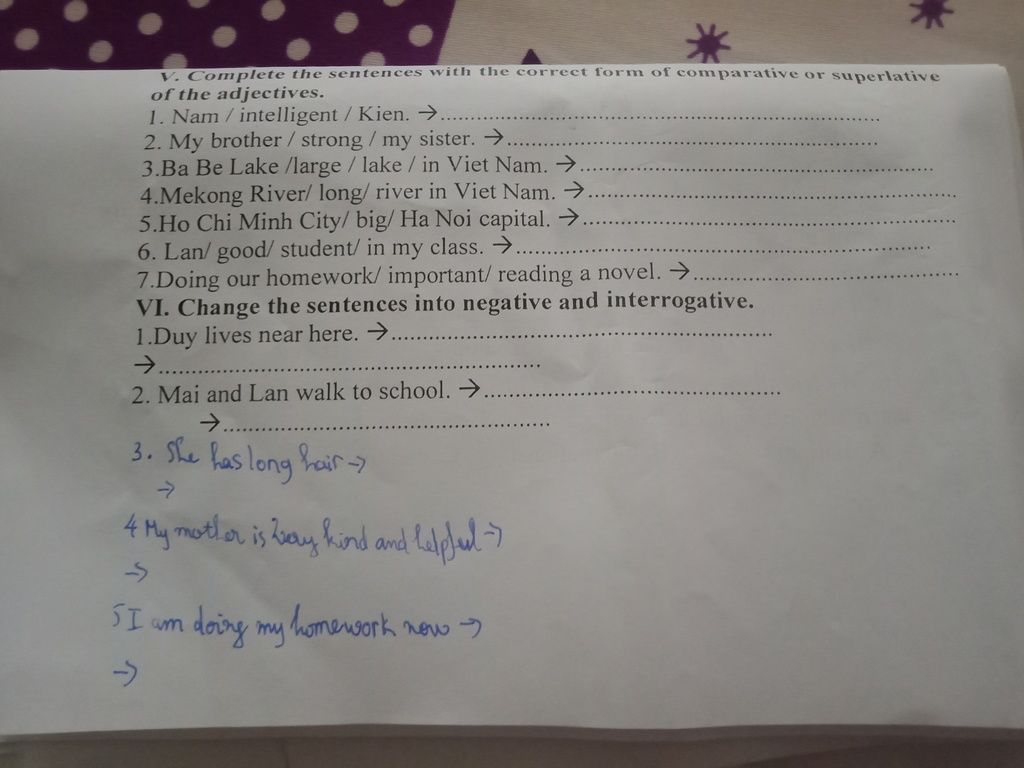 V. Complete the sentences with the correct form of comparative or superlative
of the adjectives.
1. Nam / intelligent / Kien. →..........................................................................
2. My brother / strong / my sister. →..............................................................
3.Ba Be Lake /large / lake / in Viet Nam. →...........................................................
4.Mekong River/ long/ river in Viet Nam. →..............................................................
5.Ho Chi Minh City/ big/ Ha Noi capital. →..............................................................
6. Lan/ good/ student/ in my class. →.....................................................................
7.Doing our homework/ important/ reading a novel. →............................................
VI. Change the sentences into negative and interrogative.
1.Duy lives near here. →................................................................
→................................................................
2. Mai and Lan walk to school. →..................................................
→.......................................................
3. She has long hair →
→
4 My mother is very kind and helpful →
→
5 I am doing my homework now →
→